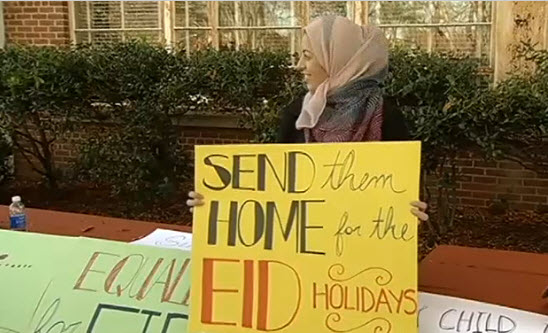 SEND them
HOME for the
EID HOLIDAYS
EQUAL
for
CHILD